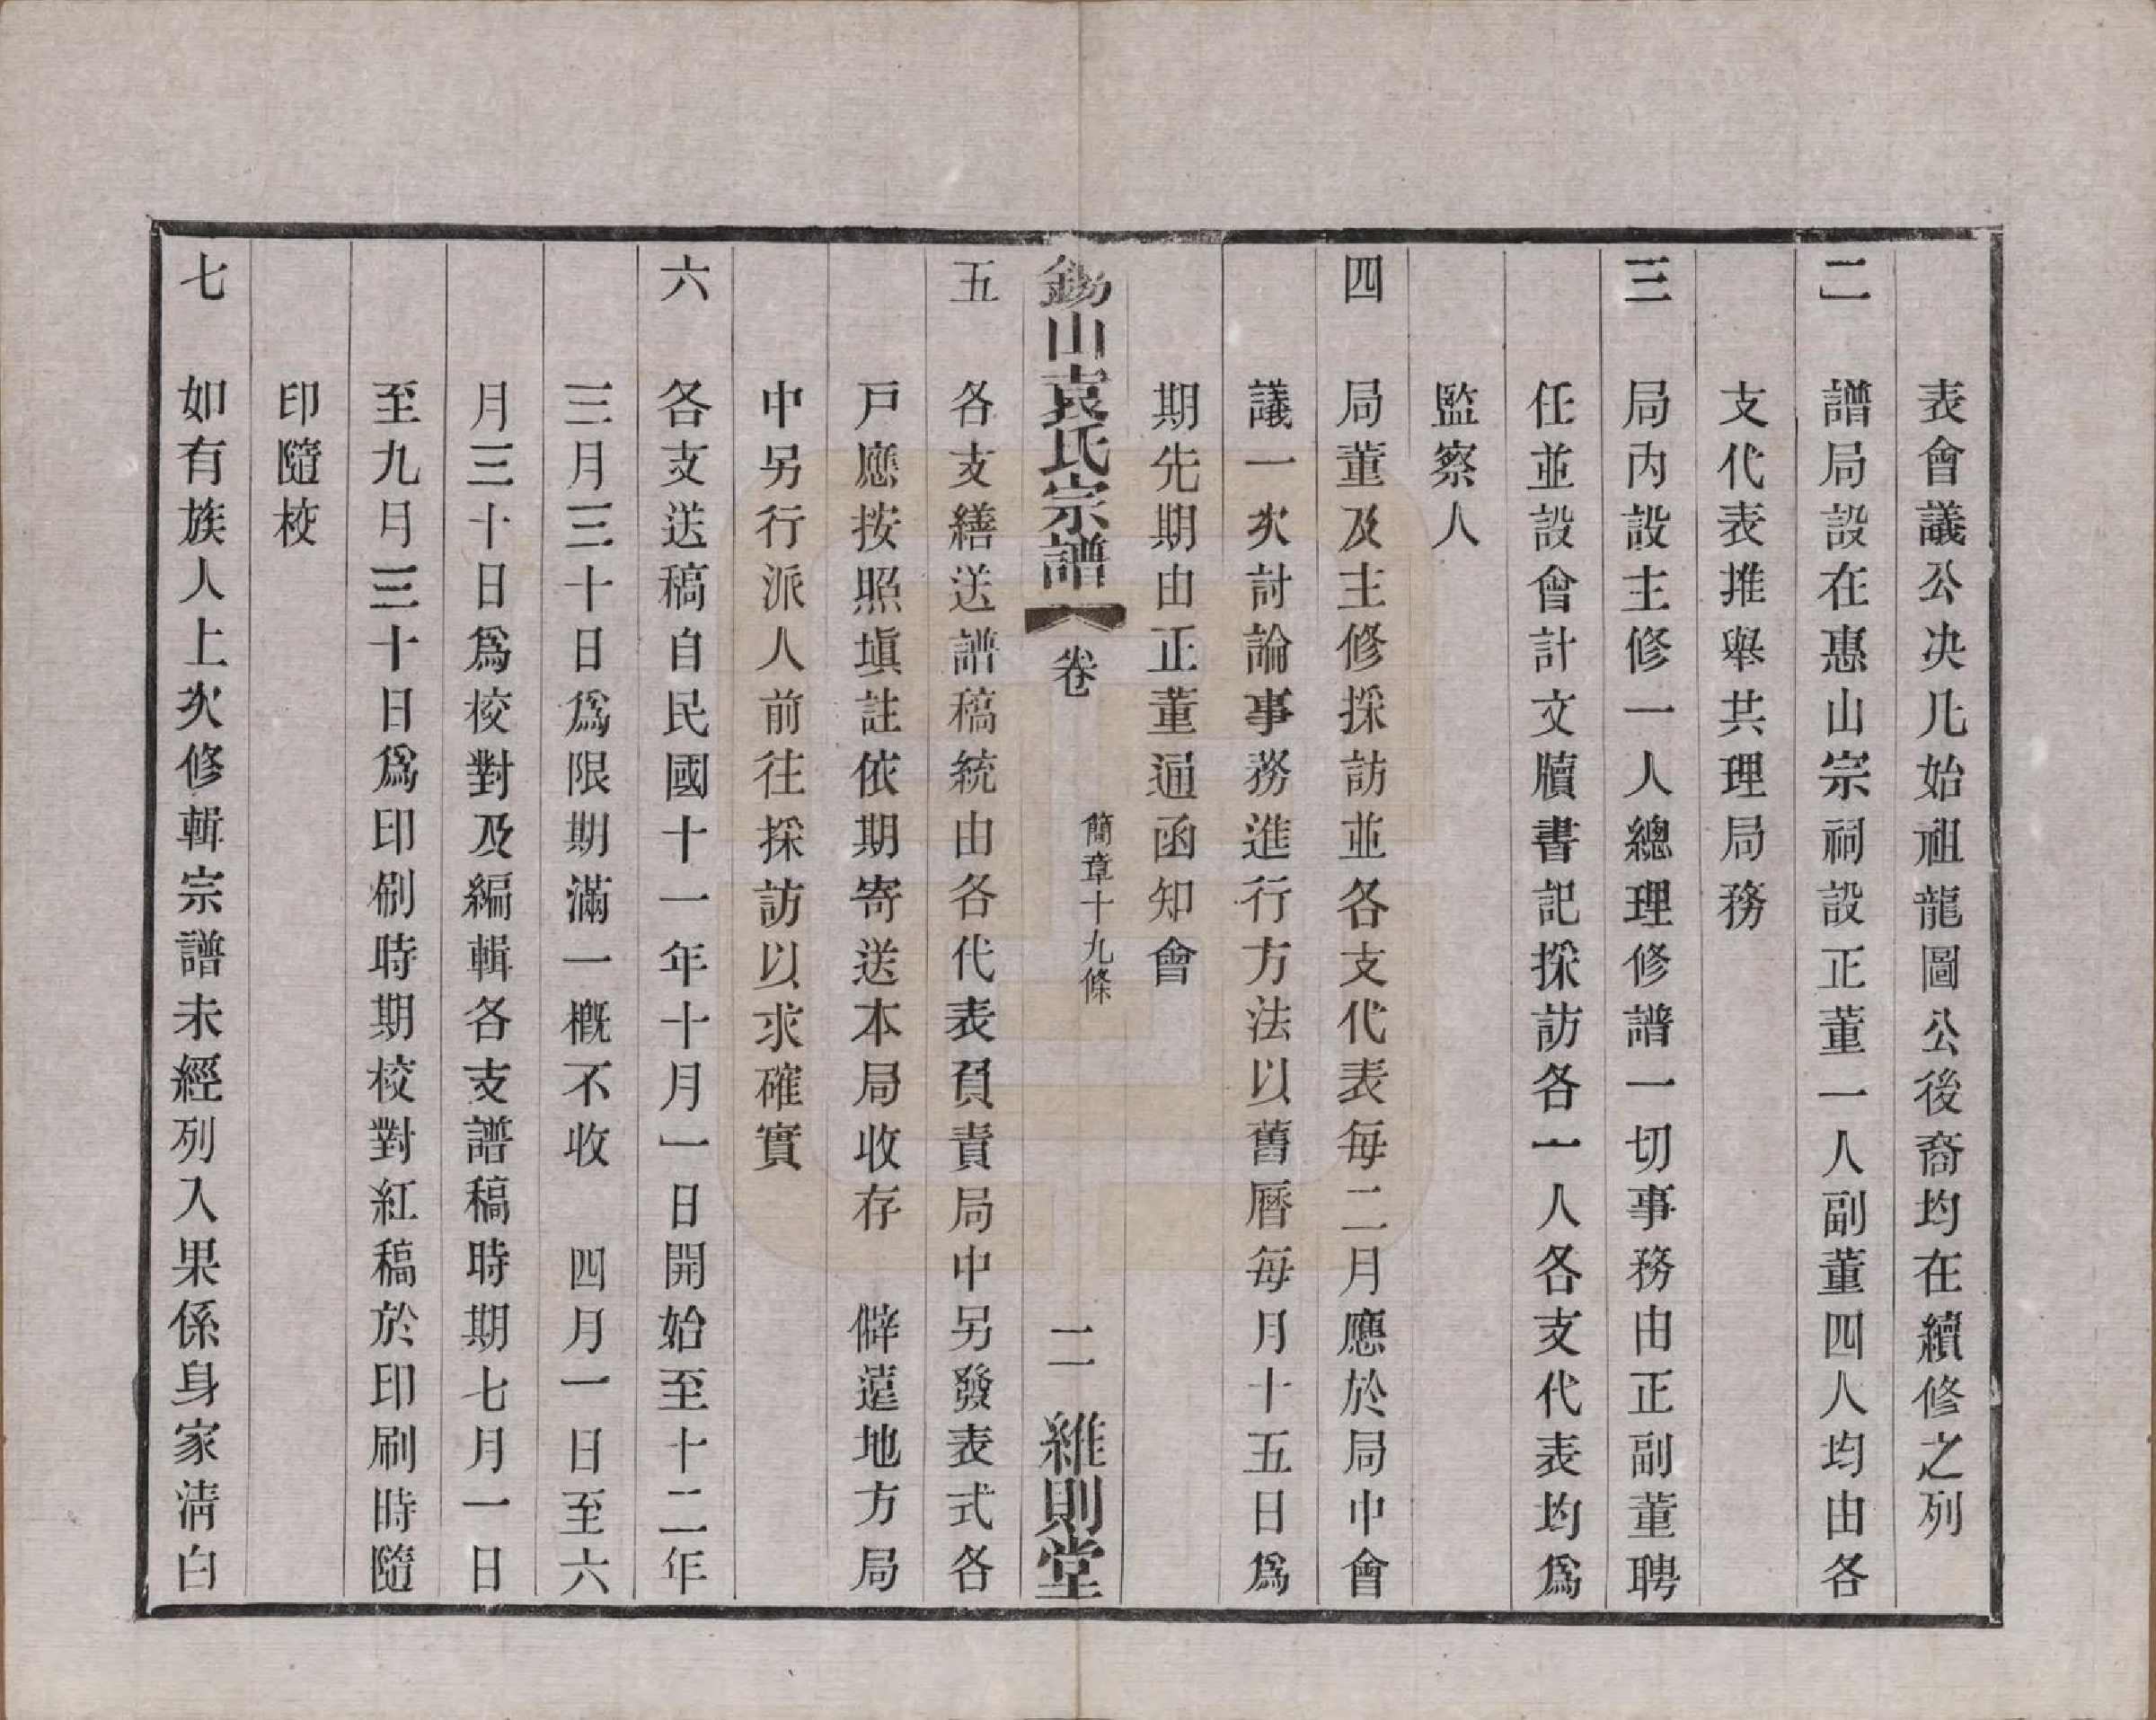 表會議公决凡始祖龍圖公後裔均在續修之列
二　譜局設在惠山宗祠設正董一人副董四人均由各
支代表推舉共理局務
三　局內設主修一人總理修譜一切事務由正副董聘
任並設會計文牘書記採訪各一人各支代表均爲
監察人
四　局董及主修採訪並各支代表每二月應於局中會
議一次討論事務進行方法以舊曆每月十五日爲
期先期由正董通函知會
錫山袁氏宗譜　卷　簡章十九條　二　維則堂
五　各支繕送譜稿統由各代表負責局中另發表式各
戸應按照塡註依期寄送本局收存　僻遠地方局
中另行派人前往採訪以求確實
六　各支送稿自民國十一年十月一日開始至十二年
三月三十日爲限期滿一概不收　四月一日至六
月三十日爲校對及編輯各支譜稿時期七月一日
至九月三十日爲印刷時期校對紅稿於印刷時隨
印隨校
七　如有族人上次修輯宗譜未經列入果係身家淸白